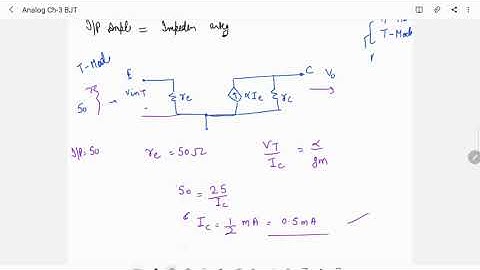 Analog Ch-3 BJT
I/P Impl = Impeden
T-Mod
T-Mod
E
C
Vo
50
Vin
re
αIe
rc
I/P: 50
re = 50Ω
VT/Ic = α/gm
50 = 25/Ic
Ic = 1/2 mA = 0.5mA